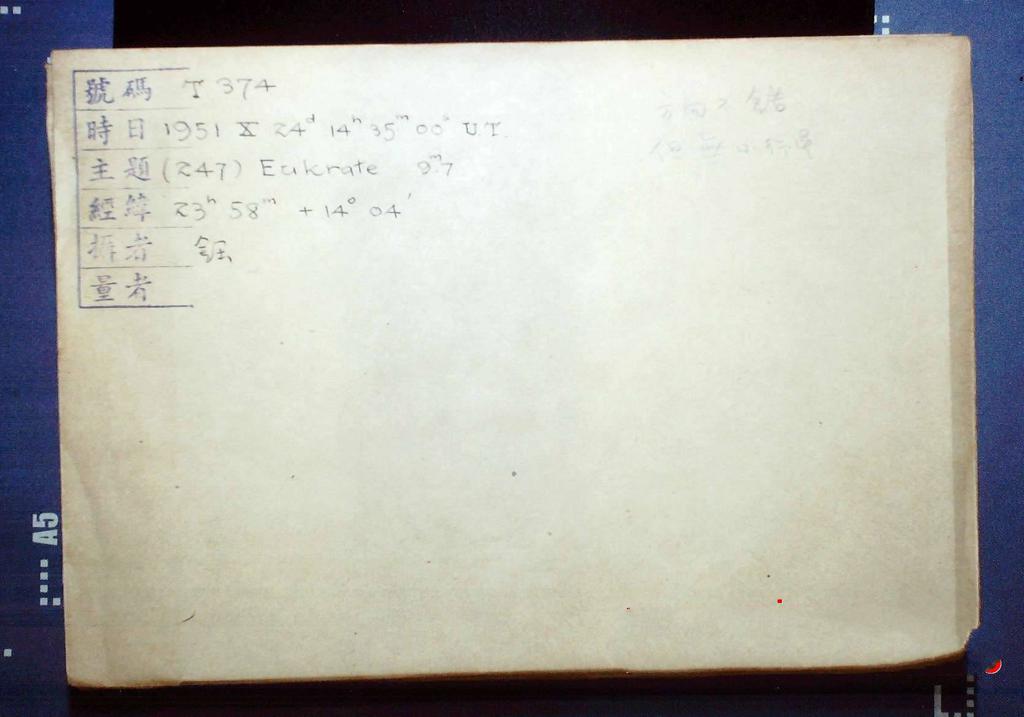 號碼 T 374
時日 1951 X 24ᵈ 14ʰ 35ᵐ 00ˢ U.T.
主題 (247) Eukrate 9ᵐ.7
經緯 23ʰ 58ᵐ +14° 04′
拆者 鈺
量者
方向不錯
但無小行星
A5